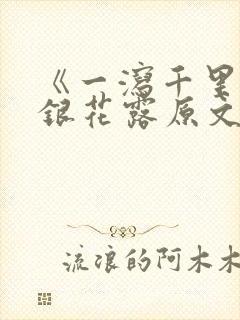 《一泻千里
银花露原文
流浪的阿木木